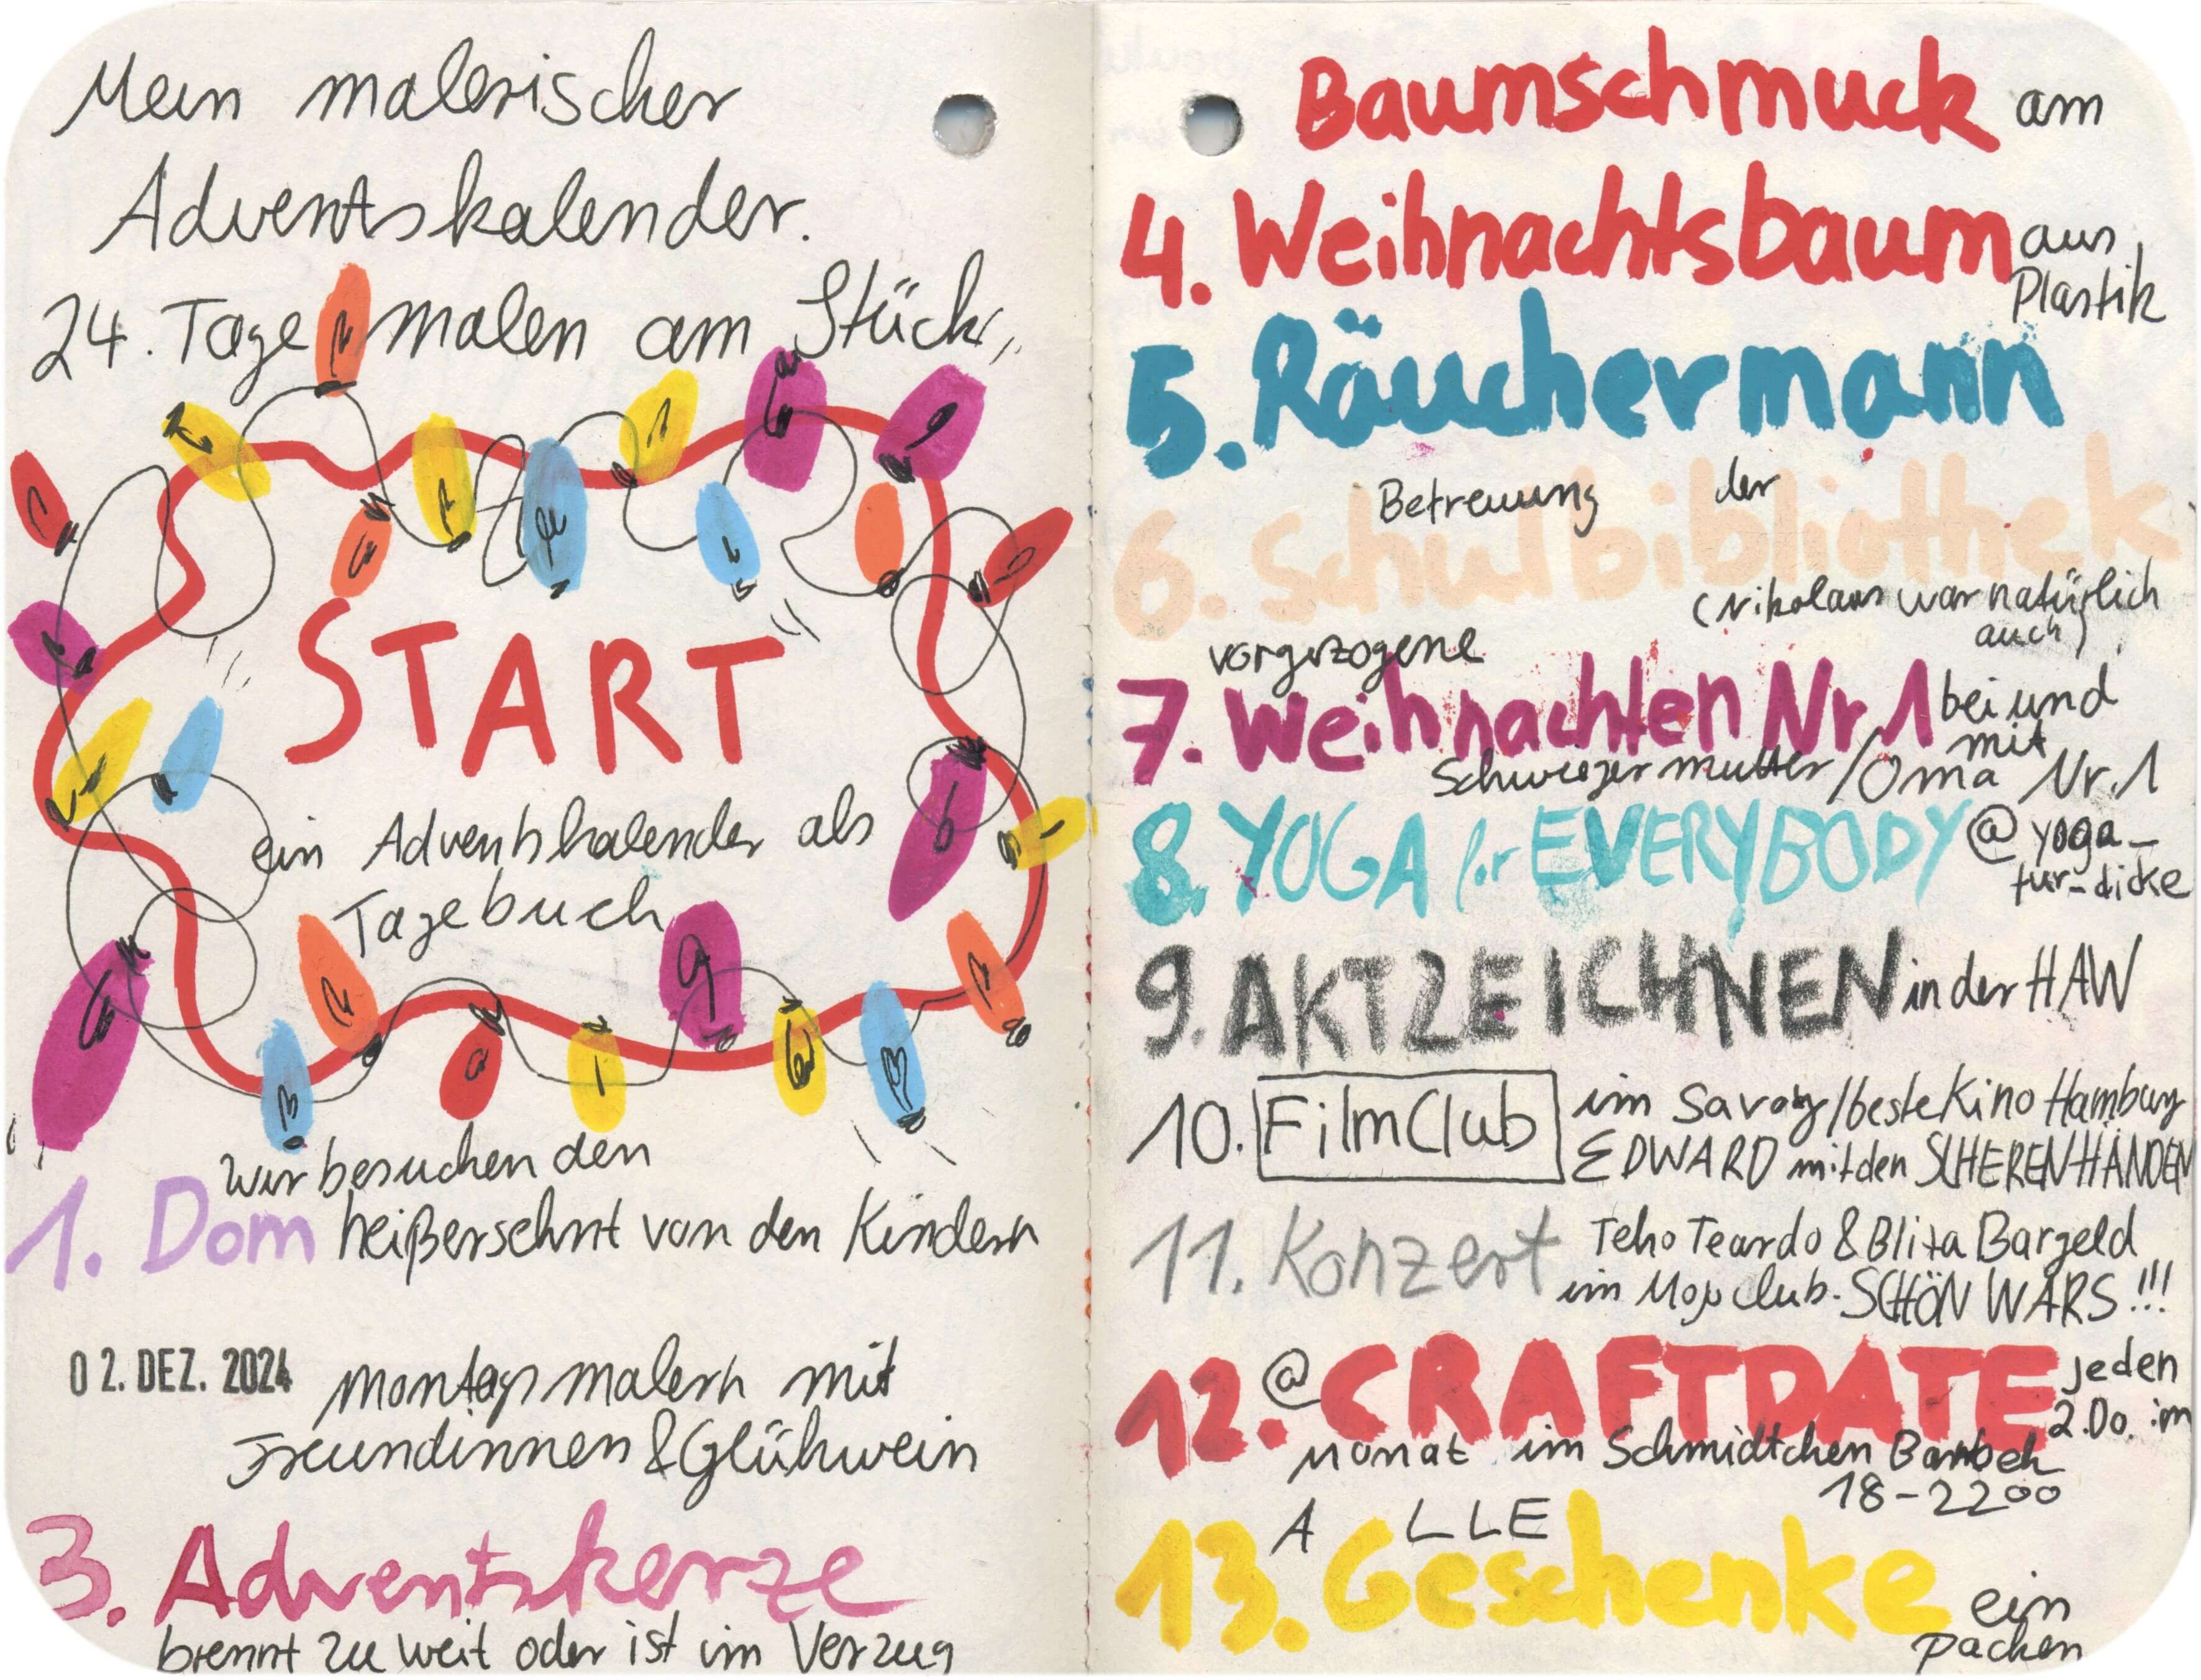 Mein malerischer
Adventskalender.
24. Tage malen am Stück
START
ein Adventskalender als
Tagebuch
wir besuchen den
1. Dom heißersehnt von den Kindern
02. DEZ. 2024 Montagsmalern mit
Freundinnen & Glühwein
3. Adventskerze
brennt zu weit oder ist im Verzug
Baumschmuck am
4. Weihnachtsbaum aus
Plastik
5. Räuchermann
Betreuung der
6. Schulbibliothek
(Nikolaus war natürlich
auch)
vorgezogene
7. Weihnachten Nr. 1 bei und
mit
Schwiegermutter/Oma Nr. 1
8. YOGA for EVERYBODY @yoga_
für_dicke
9. AKTZEICHNEN in der HAW
10. FilmClub im Savoy/beste Kino Hamburg
EDWARD mit den SCHERENHÄNDEN
11. Konzert Teho Teardo & Blixa Bargeld
im Mojo club. SCHÖN WARS !!!
12. @CRAFTDATE jeden
2. Do. im
Monat im Schmidtchen Barmbek
18-22 00
ALLE
13. Geschenke ein
packen